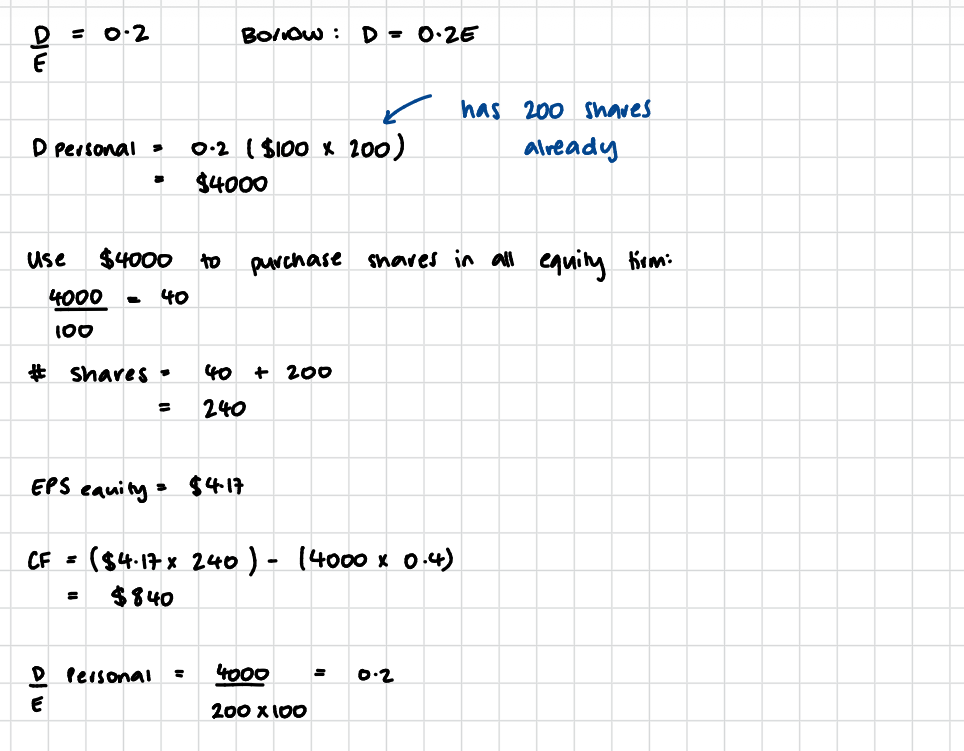 D/E = 0.2 Borrow: D = 0.2E
has 200 shares
D personal = 0.2 ($100 x 200) already
= $4000
Use $4000 to purchase shares in all equity firm:
4000/100 = 40
# shares = 40 + 200
= 240
EPS equity = $4.17
CF = ($4.17 x 240) - (4000 x 0.4)
= $840
D/E Personal = 4000/200 x 100 = 0.2